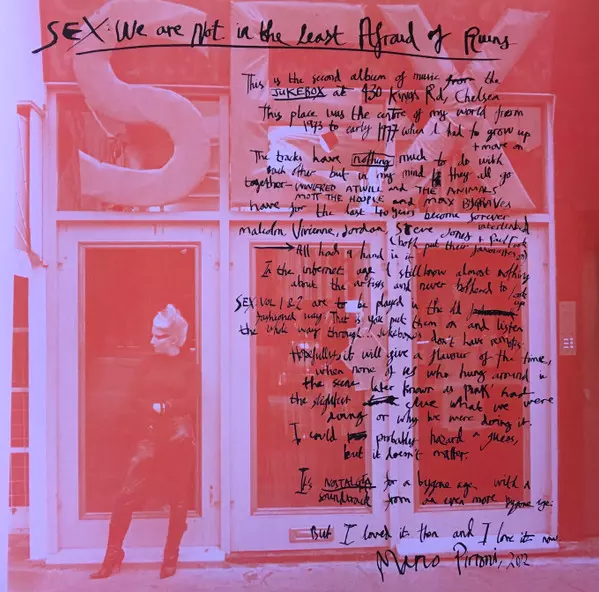 SEX: We are Not in the least Afraid of Ruins
SEX
This is the second album of music from the
JUKEBOX at 430 Kings Rd, Chelsea
This place was the centre of my world from
1973 to early 1977 when I had to grow up
+ move on
The tracks have nothing much to do with
each other but in my mind they all go
together - WINIFRED ATWELL and THE ANIMALS
MOTT THE HOOPLE and MAX BYGRAVES
have for the last 40 years become forever
intertwined
Malcolm, Vivienne, Jordan, Steve Jones + Paul Cook
(both put their favourites on)
All had a hand in it
In the internet age I still know almost nothing
about the artists and never bothered to look
SEX VOL 1 & 2 are to be played in the old
fashioned way. That is you put them on and listen
the whole way through... jukeboxes don't have remotes.
Hopefully it will give a flavour of the time,
when none of us who hung around in
the scene later known as Punk had
the slightest clue what we were
doing or why we were doing it.
I could probably hazard a guess,
but it doesn't matter.
It's NOSTALGIA for a bygone age with a
soundtrack from an even more bygone age.
But I loved it then and I love it now
Marco Pirroni, 2012